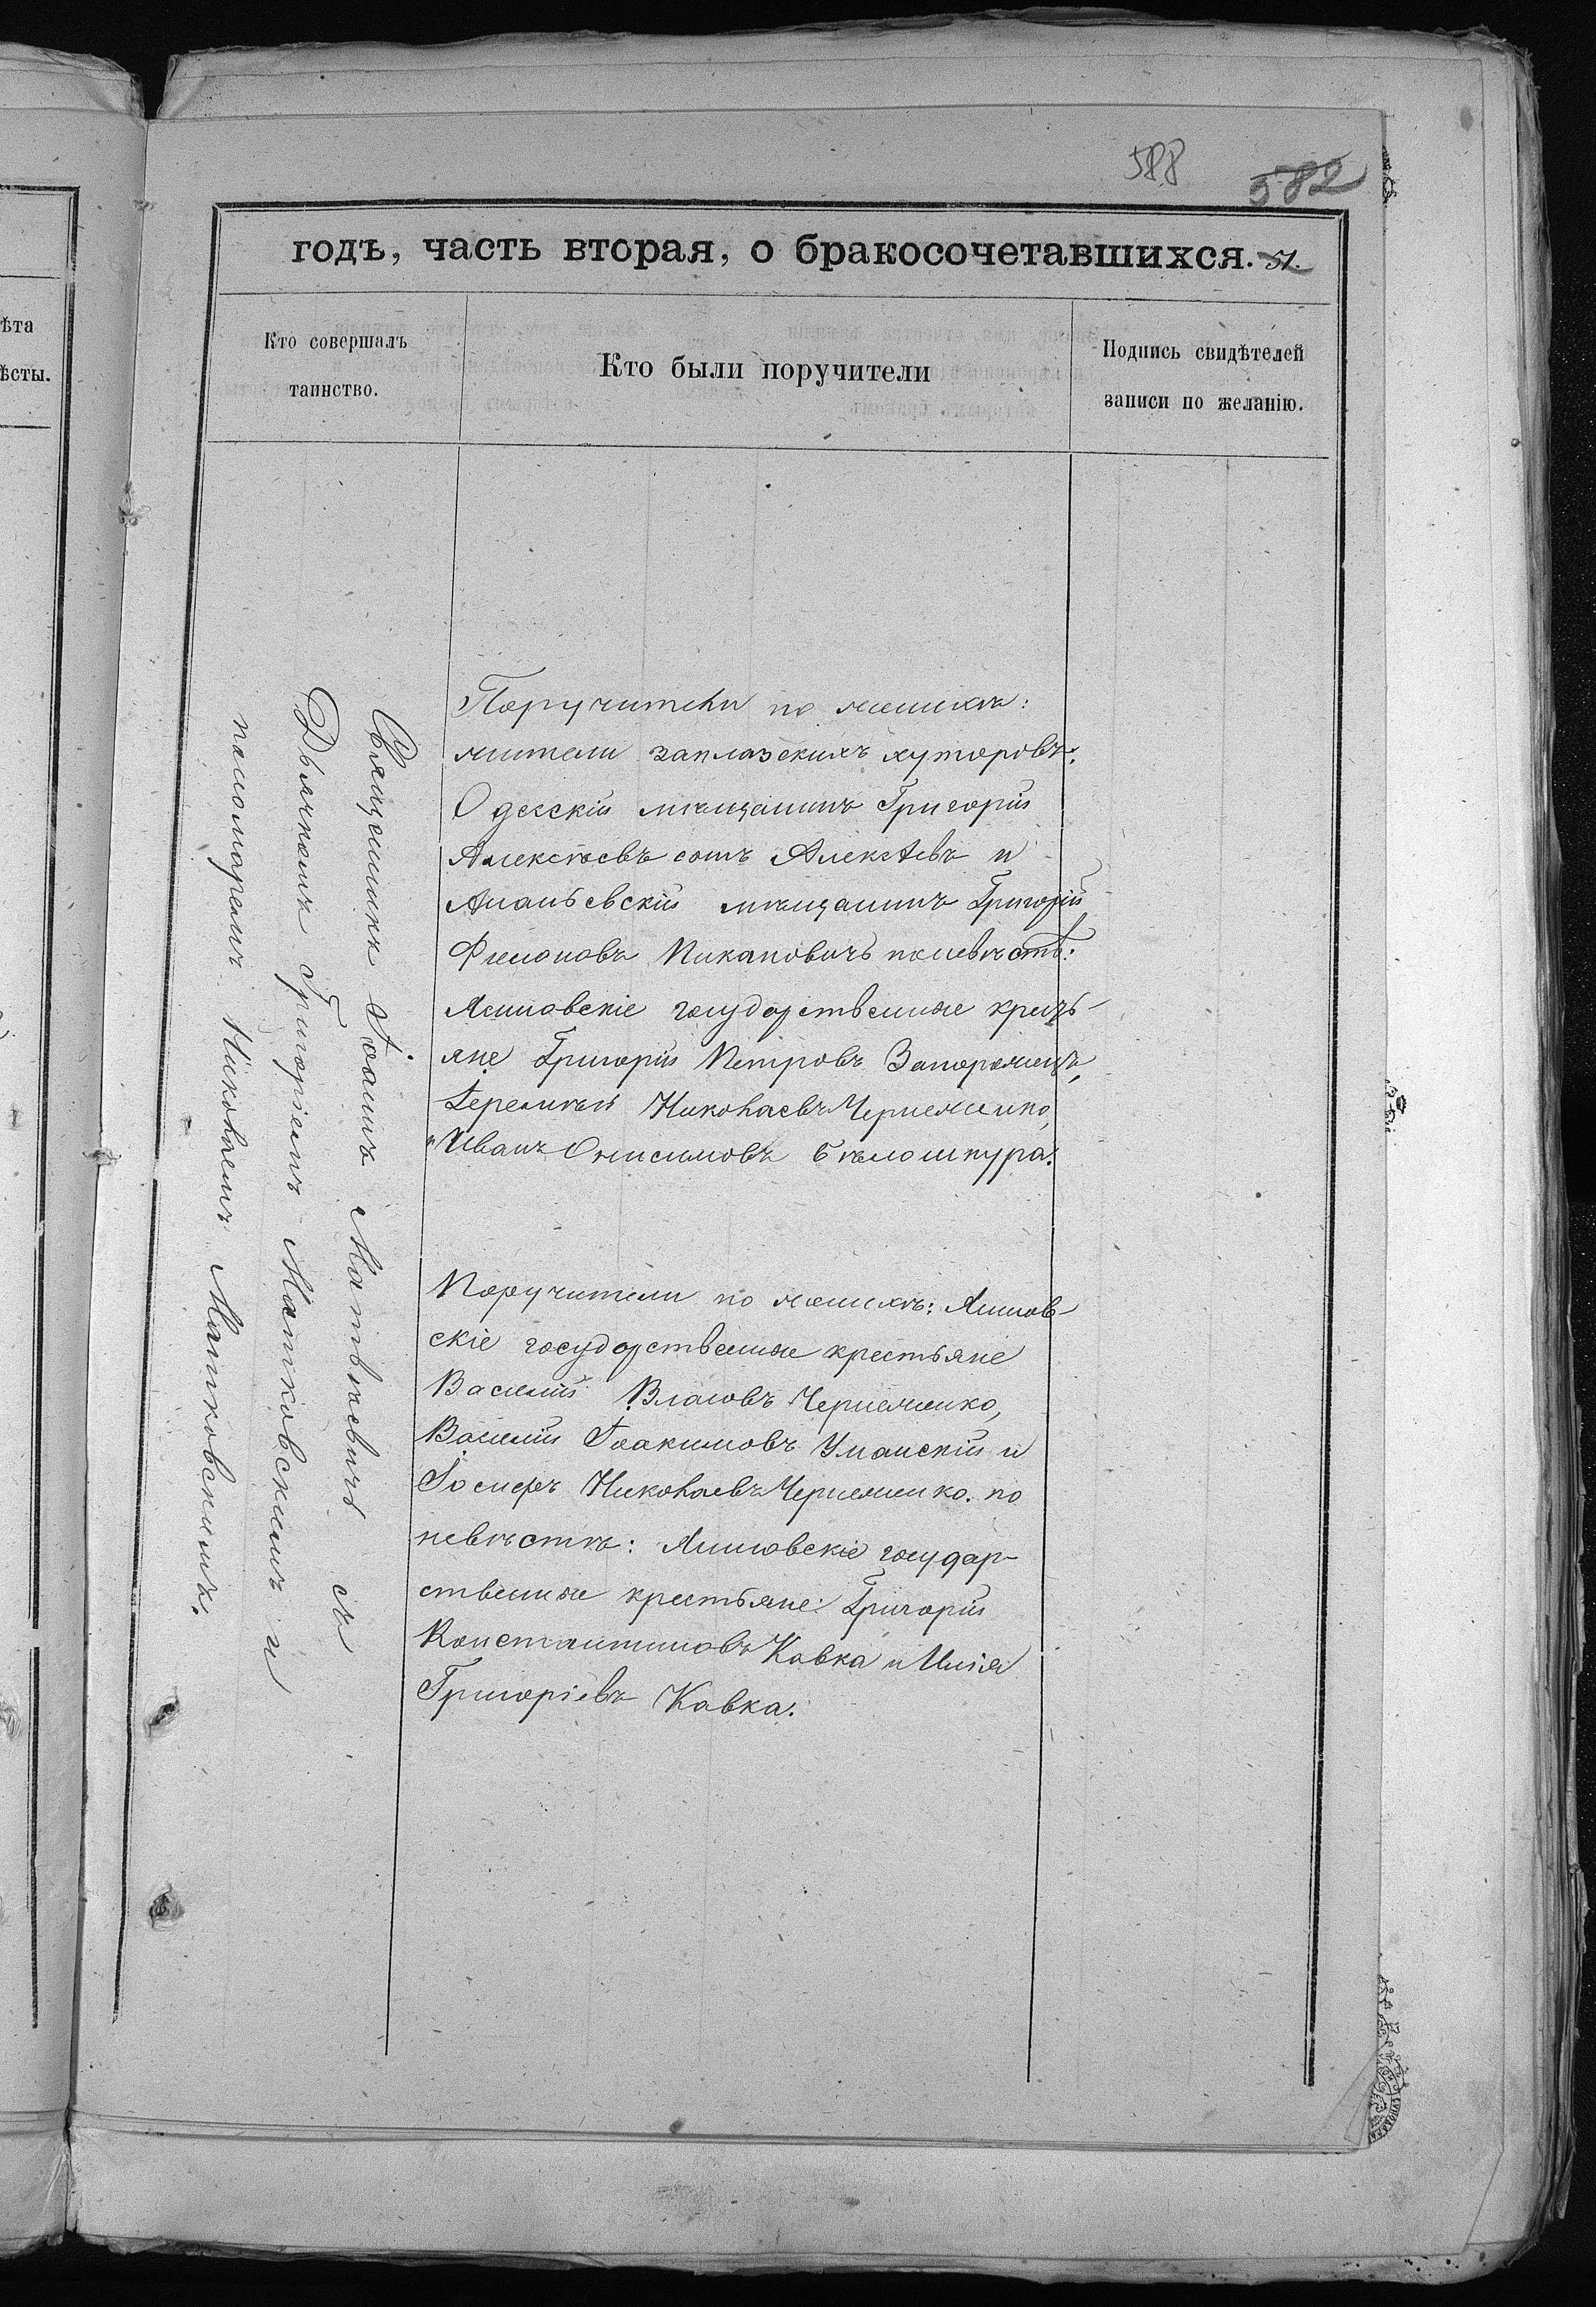 588
582
годъ, часть вторая, о бракосочетавшихся. 51.
ѣта
ѣсты.
Кто совершалъ
таинство.
Кто были поручители
Подпись свидѣтелей
записи по желанію.
Священникъ Іоаннъ Матвѣевичъ съ
Дьячкомъ Григоріемъ Матковскимъ и
пономаремъ Николаемъ Матковскимъ.
Поручители по женихѣ:
жители заплазскихъ хуторовъ:
Одесскій мѣщанинъ Григорій
Алексѣевъ сынъ Алексѣевъ и
Ананьевскій мѣщанинъ Григорій
Филоновъ Пикановичъ по невѣстѣ:
Ясиновскіе государственные кресть-
яне Григорій Петровъ Запорожецъ,
Іеремѣй Николаевъ Чернеженко,
и Иванъ Онисимовъ Бѣлошкура.
Поручители по женихѣ: Ясинов-
скіе государственные крестьяне
Василій Власовъ Чернеженко,
Василій Іоакимовъ Уманскій и
Іосифъ Николаевъ Чернеженко. по
невѣстѣ: Ясиновскіе государ-
ственные крестьяне: Григорій
Константиновъ Кавка и Илія
Григоріевъ Кавка.